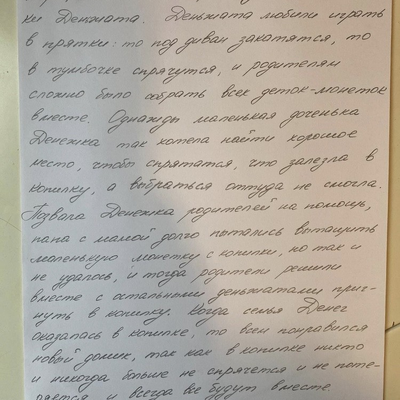 ки Денжата. Деньжата любили играть
в прятки: то под диван закатятся, то
в тумбочке спрячутся, и родителям
сложно было собрать всех деток-монеток
вместе. Однажды маленькая доченька
Денежка так хотела найти хорошое
место, чтобы спрятатся, что залезла в
копилку, а выбраться оттуда не смогла.
Позвала Денежка родителей на помощь,
папа с мамой долго пытались вытащить
маленькую монетку с копилки, но так и
не удалось, и тогда родители решили
вместе с остальными деньжатами прыг-
нуть в копилку. Когда семья Денег
оказалась в копилке, то всем понравился
новый домик, так как в копилке никто
и никогда больше не спрячется и не поте-
ряется и всегда все будут вместе.